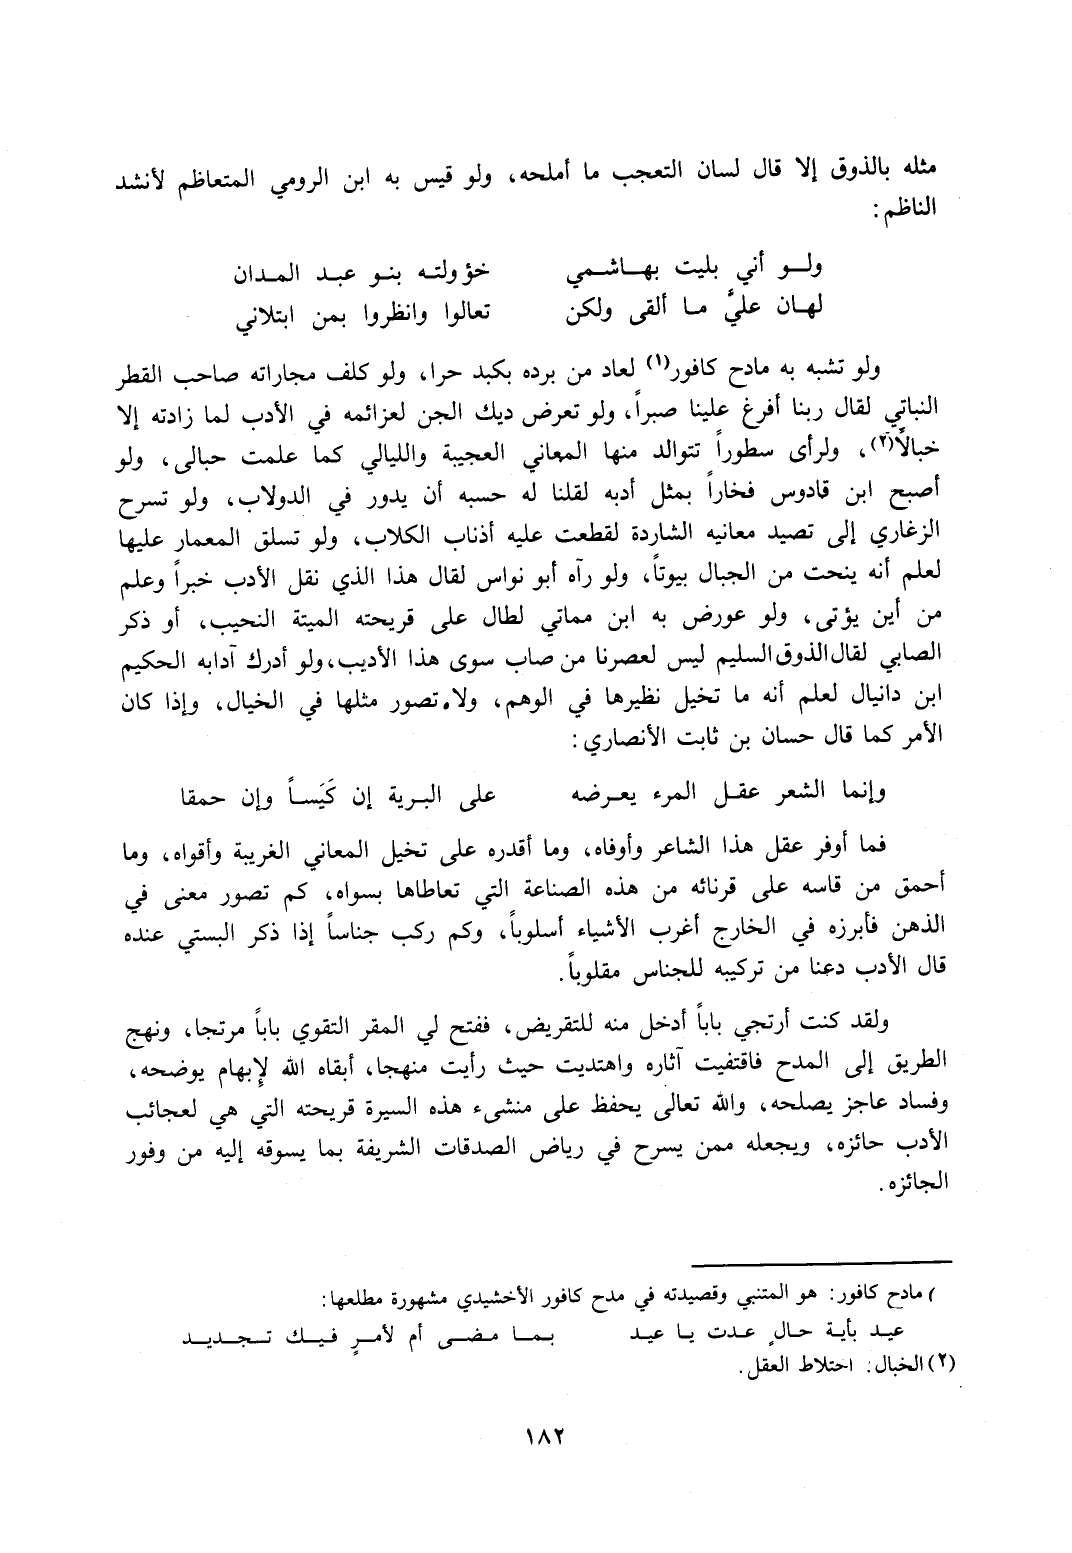 مثله بالذوق إلا قال لسان التعجب ما أملحه، ولو قيس به ابن الرومي المتعاظم لأنشد
الناظم:
ولــو أني بليت بهــاشــمي خؤولتــه بنــو عبــد المــدان
لهــان عليَّ مــا ألقى ولكن تعالوا وانظروا بمـن ابتلاني
ولو تشبه به مادح كافور(١) لعاد من برده بكبد حرا، ولو كلف مجاراته صاحب القطر
النباتي لقال ربنا أفرغ علينا صبراً، ولو تعرض ديك الجن لعزائمه في الأدب لما زادته إلا
خبالاً(٢)، ولرأى سطوراً تتوالد منها المعاني العجيبة والليالي كما علمت حبالى، ولو
أصبح ابن قادوس فخاراً بمثل أدبه لقلنا له حسبه أن يدور في الدولاب، ولو تسرح
الزغاري إلى تصيد معانيه الشاردة لقطعت عليه أذناب الكلاب، ولو تسلق المعمار عليها
لعلم أنه ينحت من الجبال بيوتاً، ولو رآه أبو نواس لقال هذا الذي نقل الأدب خبراً وعلم
من أين يؤتى، ولو عورض به ابن مماتي لطال على قريحته الميتة النحيب، أو ذكر
الصابي لقال الذوق السليم ليس لعصرنا من صاب سوى هذا الأديب، ولو أدرك آدابه الحكيم
ابن دانيال لعلم أنه ما تخيل نظيرها في الوهم، ولا تصور مثلها في الخيال، وإذا كان
الأمر كما قال حسان بن ثابت الأنصاري:
وإنما الشعر عقــل المرء يعــرضه على البــرية إن كَيَســاً وإن حمقا
فما أوفر عقل هذا الشاعر وأوفاه، وما أقدره على تخيل المعاني الغريبة وأقواه، وما
أحمق من قاسه على قرنائه من هذه الصناعة التي تعاطاها بسواه، كم تصور معنى في
الذهن فأبرزه في الخارج أغرب الأشياء أسلوباً، وكم ركب جناساً إذا ذكر البستي عنده
قال الأدب دعنا من تركيبه للجناس مقلوباً.
ولقد كنت أرتجي باباً أدخل منه للتقريض، ففتح لي المقر التقوي باباً مرتجا، ونهج
الطريق إلى المدح فاقتفيت آثاره واهتديت حيث رأيت منهجا، أبقاه الله لإبهام يوضحه،
وفساد عاجز يصلحه، والله تعالى يحفظ على منشىء هذه السيرة قريحته التي هي لعجائب
الأدب حائزه، ويجعله ممن يسرح في رياض الصدقات الشريفة بما يسوقه إليه من وفور
الجائزه.
) مادح كافور: هو المتنبي وقصيدته في مدح كافور الأخشيدي مشهورة مطلعها:
عيــد بأيــة حــالٍ عــدت يــا عيــد بمــا مضــى أم لأمــرٍ فيــك تــجــديــد
(٢) الخبال: اختلاط العقل.
١٨٢